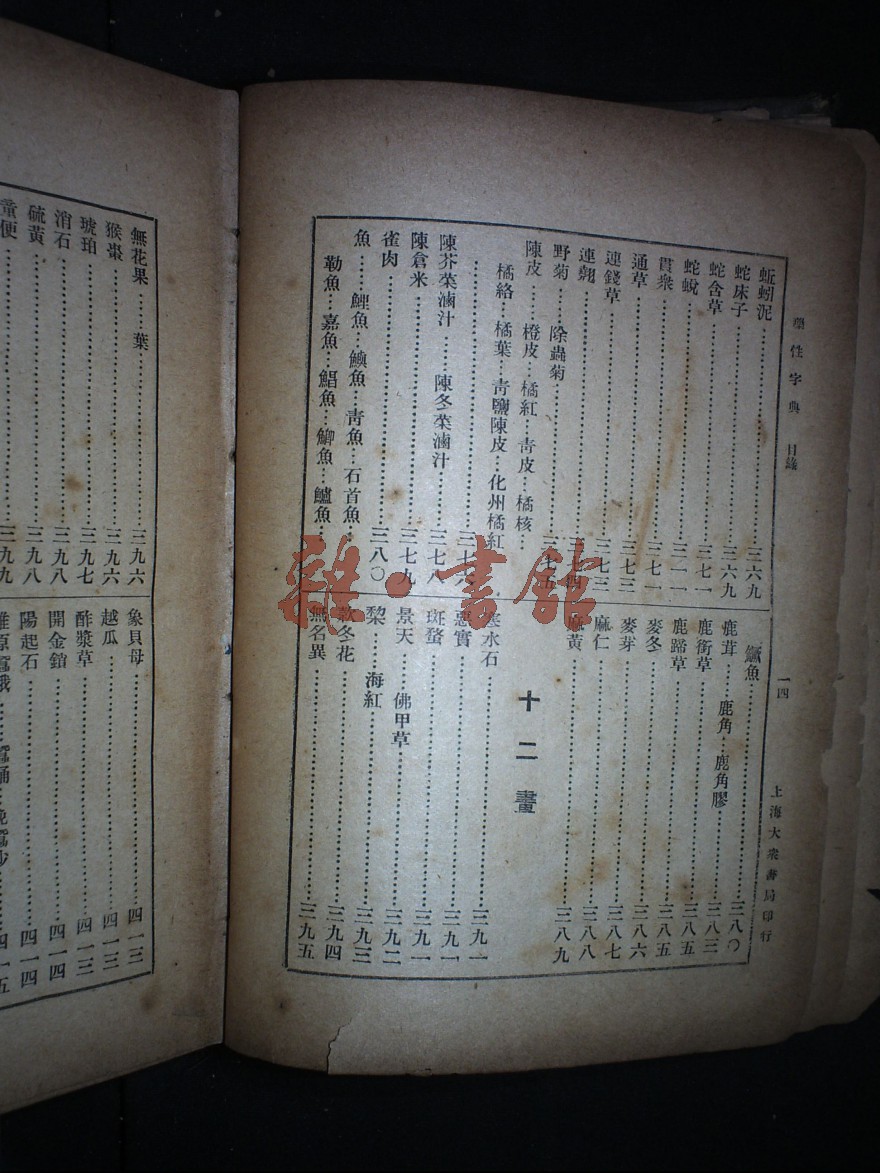 藥性字典 目錄
一四
上海大衆書局印行
蚯蚓泥 三六九
蛇床子 三六九
蛇含草 三七一
蛇蛻 三一一
貫衆 三七一
通草 三七三
連錢草 三七三
連翹
野菊 除蟲菊
陳皮 橙皮 橘紅 青皮 橘核
橘絡 橘葉 青鹽陳皮 化州橘紅
陳芥菜滷汁 陳冬菜滷汁 三七八
陳倉米 三七九
雀肉 三八〇
魚 鯉魚 鰱魚 青魚 石首魚
勒魚 嘉魚 鯧魚 鯽魚 鱸魚
鱖魚 三八〇
鹿茸 鹿角 鹿角膠 三八三
鹿銜草 三八五
鹿蹄草 三八五
麥冬 三八六
麥芽 三八七
麻仁 三八八
麻黃 三八九
十二畫
寒水石 三九一
惡實 三九一
斑蝥 三九一
景天 佛甲草 三九二
棃 海紅 三九三
款冬花 三九四
無名異 三九五
無花果 葉 三九六
猴棗 三九六
琥珀 三九七
消石 三九八
硫黃 三九八
童便 三九九
象貝母 四一三
越瓜 四一三
酢漿草 四一三
開金鎖 四一四
陽起石 四一四
四一五
雜·書館